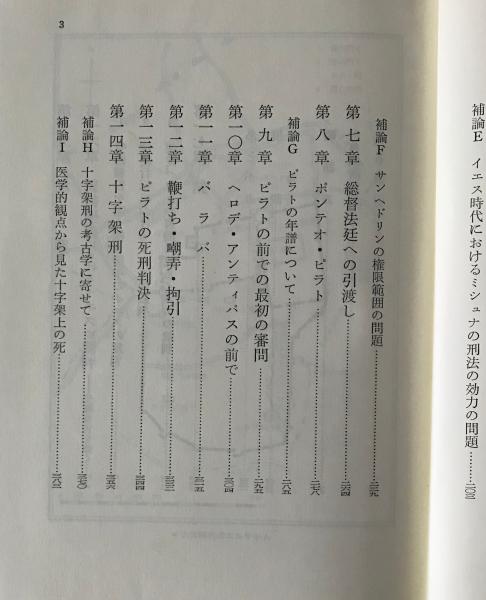 補論E イエス時代におけるミシュナの刑法の効力の問題………二〇三
3
補論F サンヘドリンの権限範囲の問題………
第七章 総督法廷への引渡し………二六四
第八章 ポンテオ・ピラト………二七八
補論G ピラトの年譜について………二八五
第九章 ピラトの前での最初の審問………二九五
第一〇章 ヘロデ・アンティパスの前で………三〇四
第一一章 バラバ………三一五
第一二章 鞭打ち・嘲弄・拘引………
第一三章 ピラトの死刑判決………三四四
第一四章 十字架刑………三五六
補論H 十字架刑の考古学に寄せて………三七〇
補論I 医学的観点から見た十字架上の死………